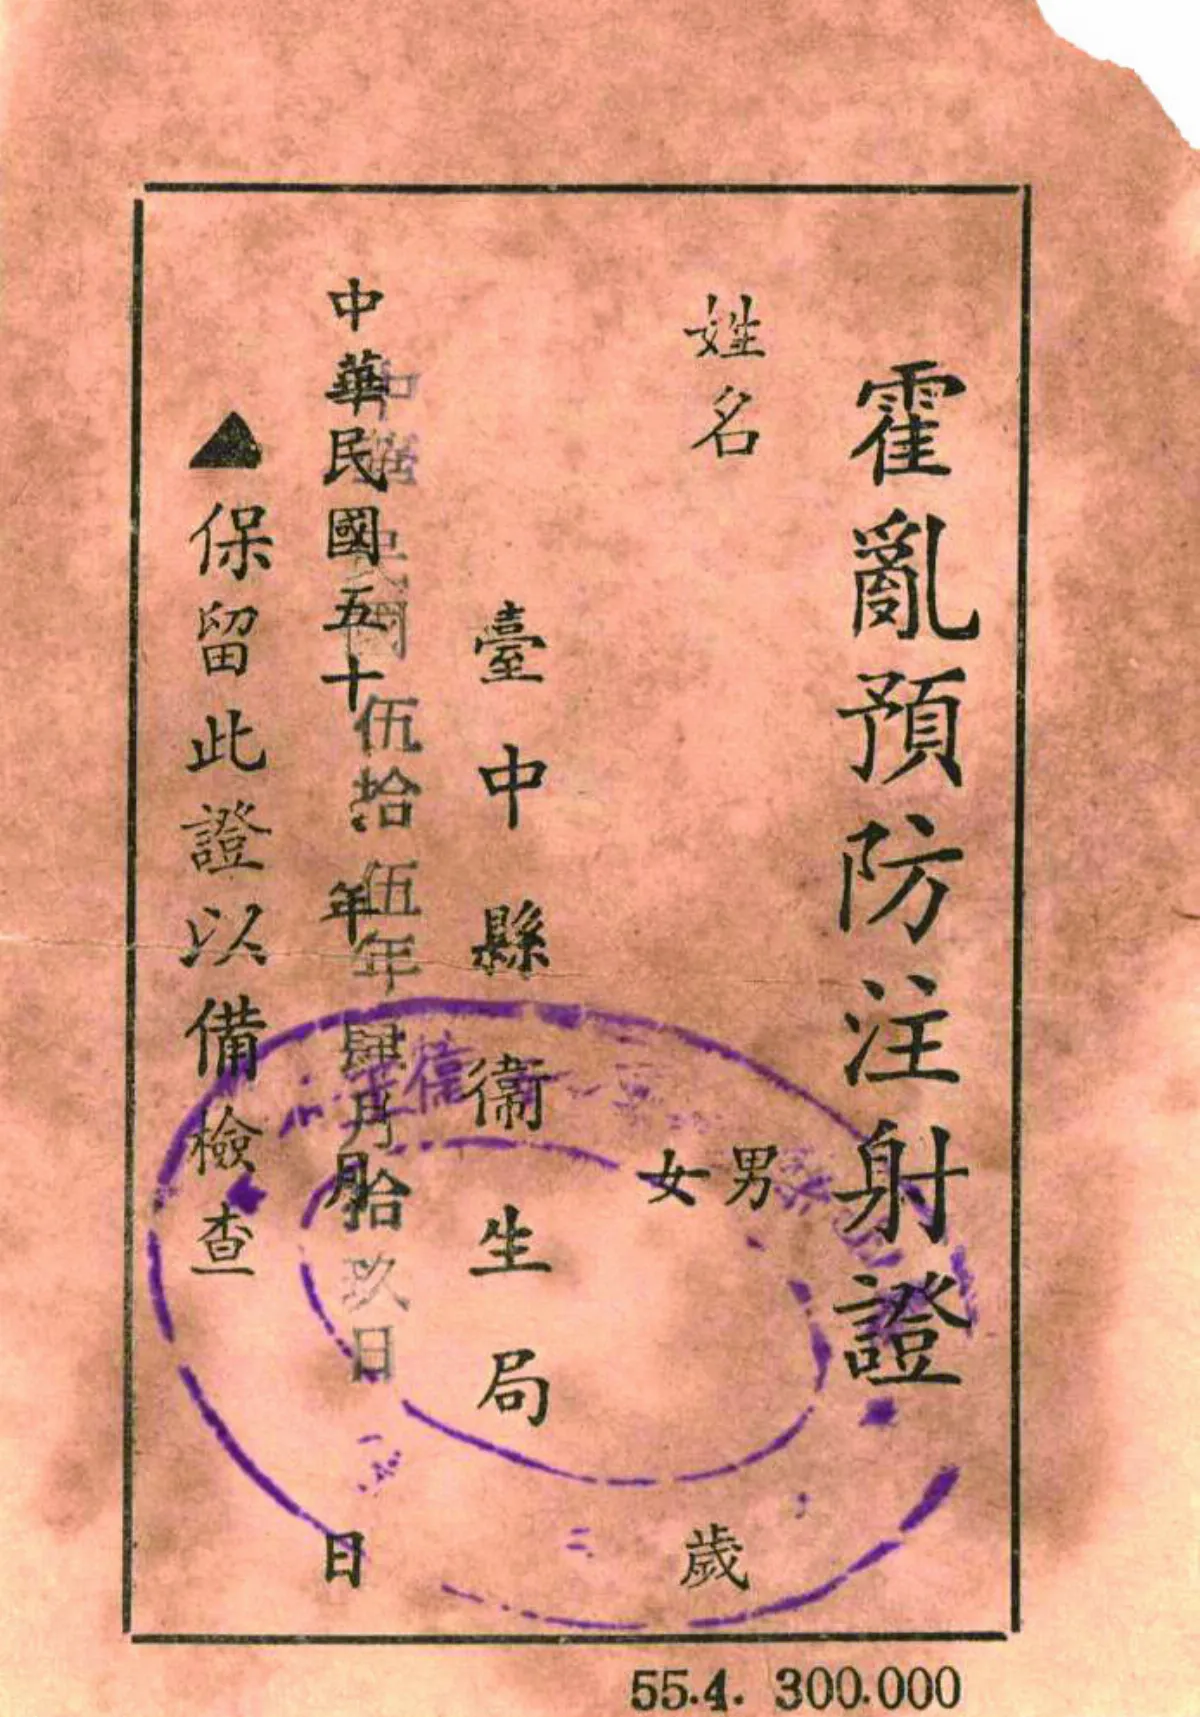 霍亂預防注射證
姓名
男
女
歲
臺中縣衞生局
中華民國五十年月日
中華民國伍拾伍年肆月拾玖日
▲保留此證以備檢查
衞
55.4. 300.000